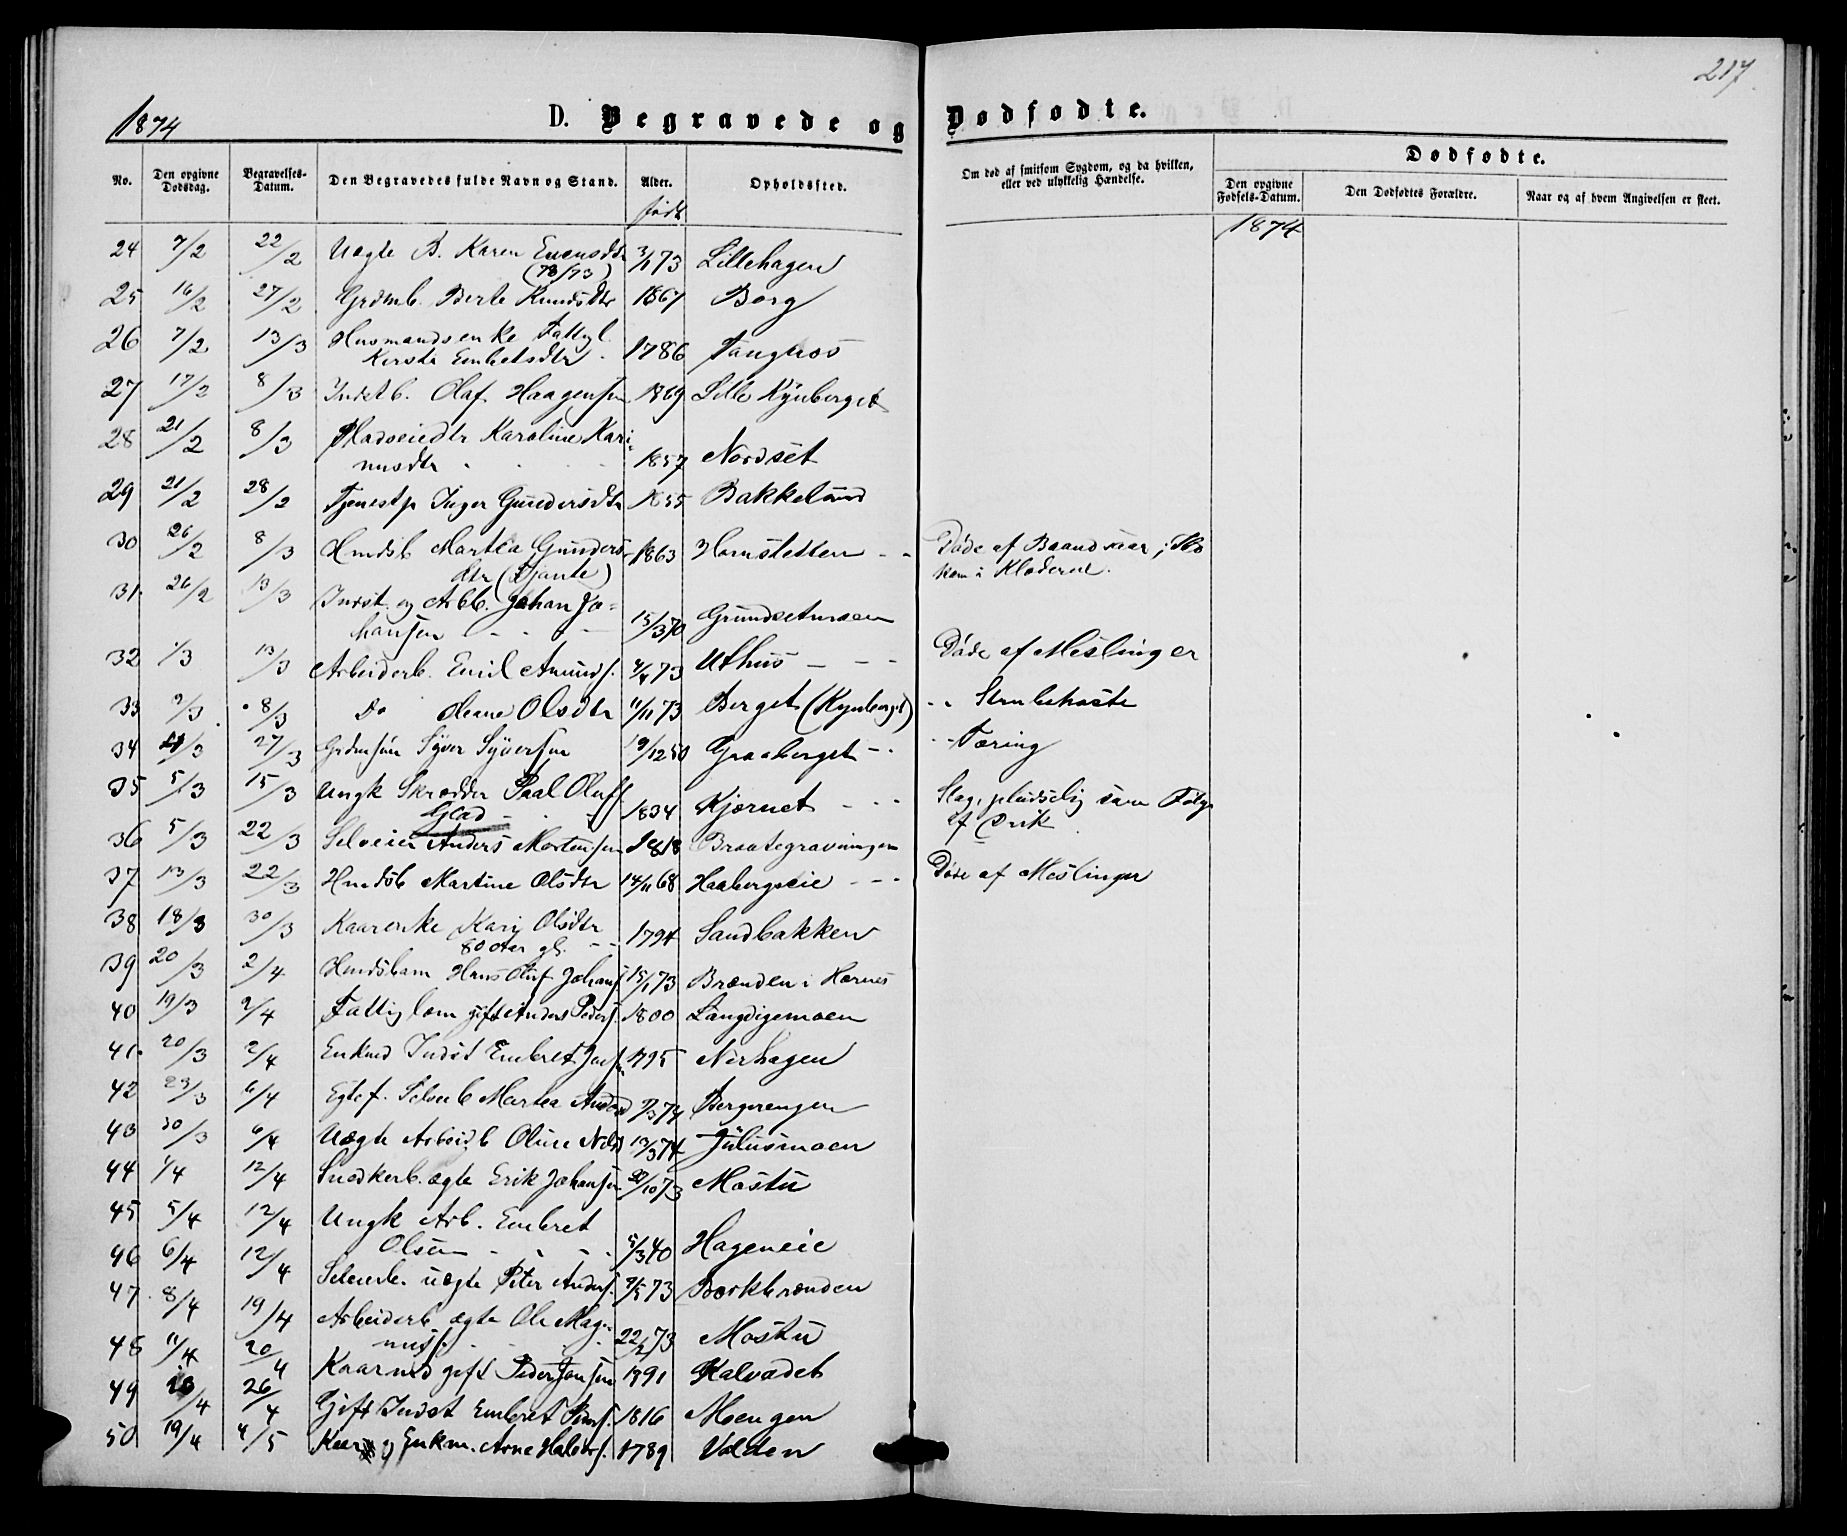 217
1874
D. Begravede og Dødfødte.
No.
Den opgivne Dødsdag.
Begravelses-Datum.
Den Begravedes fulde Navn og Stand.
Alder.
født
Opholdssted.
Om død af smitsom Sygdom, og da hvilken, eller ved ulykkelig Hændelse.
Dødfødte.
Den opgivne Fødsels-Datum.
Den Dødfødtes Forældre.
Naar og af hvem Angivelsen er skeet.
1874
24 7/2 22/2 Uægte B. Karen Evensdtr 3/1 73 Lillehagen
(78/73)
25 16/2 27/2 Grdmb. Berte Knudsdtr 1867 Berg
26 7/2 13/3 Husmandsenke Fattigl.
Kersti Embretsdtr 1786 Tangnos
27 17/2 8/3 Indstb. Olaf Haagensen 1869 Lille Kynberget
28 21/2 8/3 Pladseiedtr Karoline Kari-
nusdtr 1857 Nordset
29 21/2 28/2 Tjenestp Inger Gundersdtr 1855 Bakkelund
30 26/2 8/3 Hmdsb Martea Gunders- 1863 Hornstetten - - Døde af Brandsaar;
dtr kom i Klæderne.
31. 26/2 13/3 Indst. og Arbb. Johan Jo-
hansen - - - 15/3 70 Grundsetmoen
32 1/3 13/3 Arbeiderb. Emil Amunds. 4/4 73 Uthus - - - Døde af Meslinger
33 2/3 8/3 Do Olsdtr 11/11 73 Berget (Kynberget) - - Strubehoste
34 4/3 27/3 Grdmsøn Syver Syversen 19/12 50 Graaberget - - - - Tæring
35 5/3 15/3 Ungk Skrædder Paal Olufs.
Glad - 1834 Kjernet - - - Slag, pludselig som Følge
af Drik
36 5/3 22/3 Selveier Anders Mortensen 1818 Braategravningen
37 13/3 22/3 Hmdsb Martine Olsdtr 14/11 68 Haabergseie - - - Døde af Meslinger
38 18/3 30/3 Kaarenke Kari Olsdtr
80 Aar gl. - - 1794 Sandbakken
39 20/3 2/4 Hmdsbarn Hans Oluf Johans. 15/1 73 Brænden i Hernes
40 19/3 2/4 Fattiglem gift Anders Peders. 1800 Langdigemoen
41. 20/3 2/4 Enkmd Indst Embret 1795 Nerhagen
42 23/3 6/4 Egtef. Selveb Martea 74 Bergerengen
43 30/3 6/4 Uægte Arbeidb Oline 13/3 74 Julusmoen
44 1/4 12/4 Snedkerb. ægte Erik Johansen 20/10 73 Mostu
45 5/4 12/4 Ungk Arb. Embret
Olsen - - - 5/3 40 Hageneie
46 6/4 12/4 Selveierb. uægte Peter Anders. 9/5 73 Bærkbrænden
47. 8/4 19/4 Arbeiderb. ægte Ole Mag-
nus. 22/2 73 Mostu
48 11/4 20/4 Kaarmd gift Peder Jonsen 1791 Kalvadet
49 13/4 26/4 Gift Indst Embret Peders. 1816 Moengen
50 19/4 4/5 Kaar og Enkm. Arne Halvors. 1789 Volden